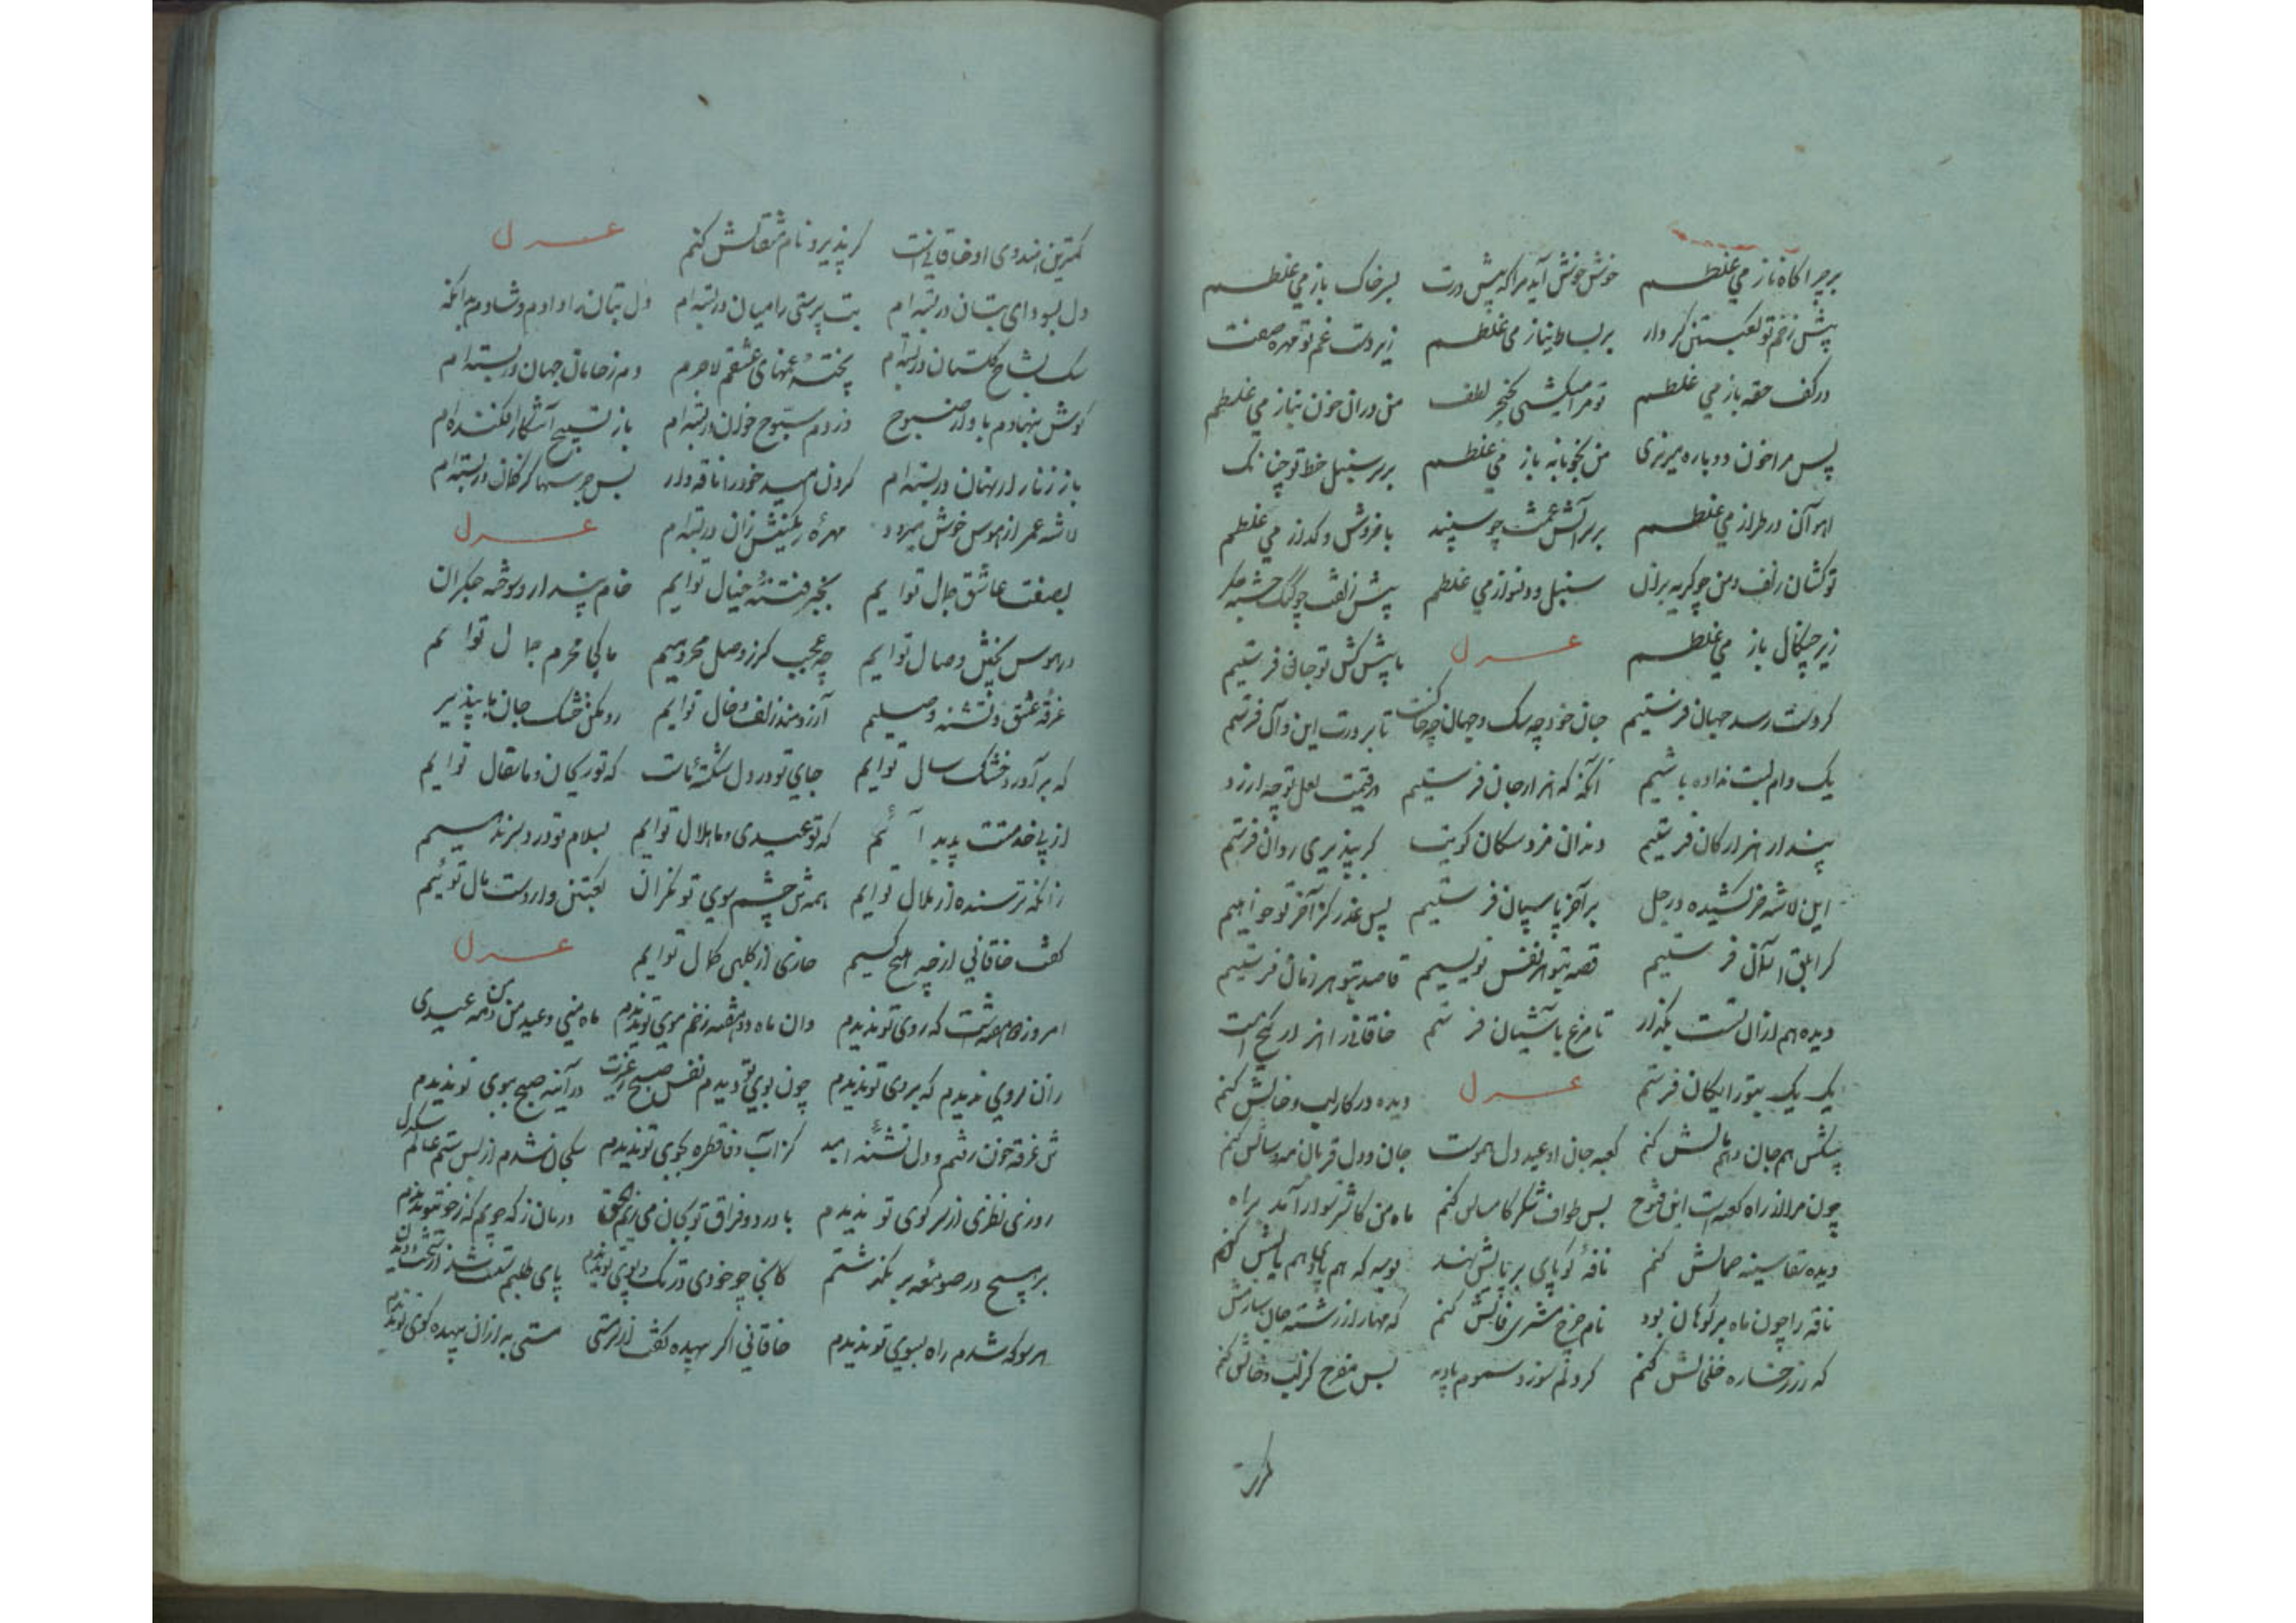 بر چراگاه ناز می غلطم خوش خوش آید مرا که پیش درت بر خاک باز می غلطم
پیش زخم تو کعبتین کردار بر بساط نیاز می غلطم زیر دست غم تو مهره صفت
در کف حقه باز می غلطم تو مرا میکشی بخنجر لطف من دران خون بناز می غلطم
پس مرا خون دوباره میریزی من بخونابه باز می غلطم بر سر سنبل خط تو چنانک
آهو آن در طراز می غلطم بر سر آتش غمت چو سپند با خروش و گداز می غلطم
تو کشان زلف و من چو گربه بران سنبل و دلنواز می غلطم پیش زلفت چو کبک خسته جگر
زیر چنگال باز می غلطم غزل ما پیشکش تو جان فرستیم
گر دست رسد جهان فرستیم جان خود چه سگ و جهان چه خاکست تا بر درت این و آن فرستیم
یک وام لبت نداده باشیم آنگه که هزار جان فرستیم در قیمت لعل تو چه ارزد
پندار هزار کان فرستیم دندان مزد سگان کویت گر بپذیری روان فرستیم
این لاشه خر کشیده در جل بر آخر پاسبان فرستیم پس عذر کز آخر تو خواهیم
گر ابلق آسمان فرستیم قصه بتو هر نفس نویسیم قاصد بتو هر زمان فرستیم
دیده هم ازان تست بگذار تا مرغ بآشیان فرستیم خاقانی را هزار گنج است
یک یک بتو رایگان فرستیم غزل دیده در کار لب و خالش کنم
پیشکش هم جان و هم مالش کنم کعبه جان او عید دل هموست جان و دل قربان مه و سالش کنم
چون مرا از راه کعبه است این فتوح بس طواف شکر کامسالش کنم ماه من کاشتر سوار آمد براه
دیده تقاسینه حمالش کنم ناقه کو پای بر بالش نهد بوسه گه هم پای و هم بالش کنم
ناقه را چون ماه بر کوهان بود نام چرخ مشتری فالش کنم که مهار از رشته جان سازمش
که زر رخساره خلخالش کنم گر دلم سوزد سموم بادیه بس مفرح کز لب و خالش کنم
کمترین هندوی او خاقانیست گر پذیرد نام مثقالش کنم غزل
دل بسودای بتان در بسته ام بت پرستی را میان در بسته ام دل بتان را دادم و شادم بدانکه
سگ بشاخ گلستان در بسته ام پخته غمهای عشقم لاجرم دم ز خامان جهان در بسته ام
گوش بنهادم باواز صبوح در دم سبوح خوان در بسته ام باز تسبیح آشکار افکنده ام
باز زنار از نهان در بسته ام گردن امید خود را ناقه وار بس جرسها کز فغان در بسته ام
لاشه عمر از هوس خوش میرود مهره رنگینش زان در بسته ام غزل
بصفت عاشق جمال توایم بخبر فتنه خیال توایم خام پندار و سوخته جگران
در هوس پختن وصال توایم چه عجب گر ز وصل محرومیم ما کی محرم جمال توایم
غرقه عشق و تشنه وصلیم آرزومند زلف و خال توایم رو مکن خشک جان ما بپذیر
که بر آورد خشک سال توایم جای تو در دل شکسته ماست که تو ریحان و ما سفال توایم
از پی خدمتت پدید آئیم که تو عیدی و ما هلال توایم بسلام تو درد سر ندهیم
زانکه ترسنده از ملال توایم همه شب چشم سوی تو نگران کعبتین وار دست مال توئیم
گفت خاقانی از چه هیچ کسیم حاذق از کلبی کمال توایم غزل
امروز دو هفته است که روی تو ندیدم وان ماه دو هفته ز خم موی تو ندیدم ماه منی و عید من و من مه عیدی
زان نروی ندیدم که بروی تو ندیدم چون بوی تو دیدم نفس صبح و ز غیرت در آینه صبح ببوی تو ندیدم
تن غرقه خون رفتم و دل تشنه امید کز آب وفا قطره بجوی تو ندیدم سگ جان شدم از بس ستم عالم سگدل
روزی نظری از سر کوی تو ندیدم با درد و فراق تو بجان می زنم الحق درمان ز که جویم که ز خوی تو ندیدم
بر هیچ در صومعه بر نگذشتم کانجا چو خودی در تک و پوی تو ندیدم پای طلبم سست شد از سخت دویدن
هر سو که شدم راه بسوی تو ندیدم خاقانی اگر بیهده گفت از سر مستی مستی به ازان بیهده گوی تو ندیدم